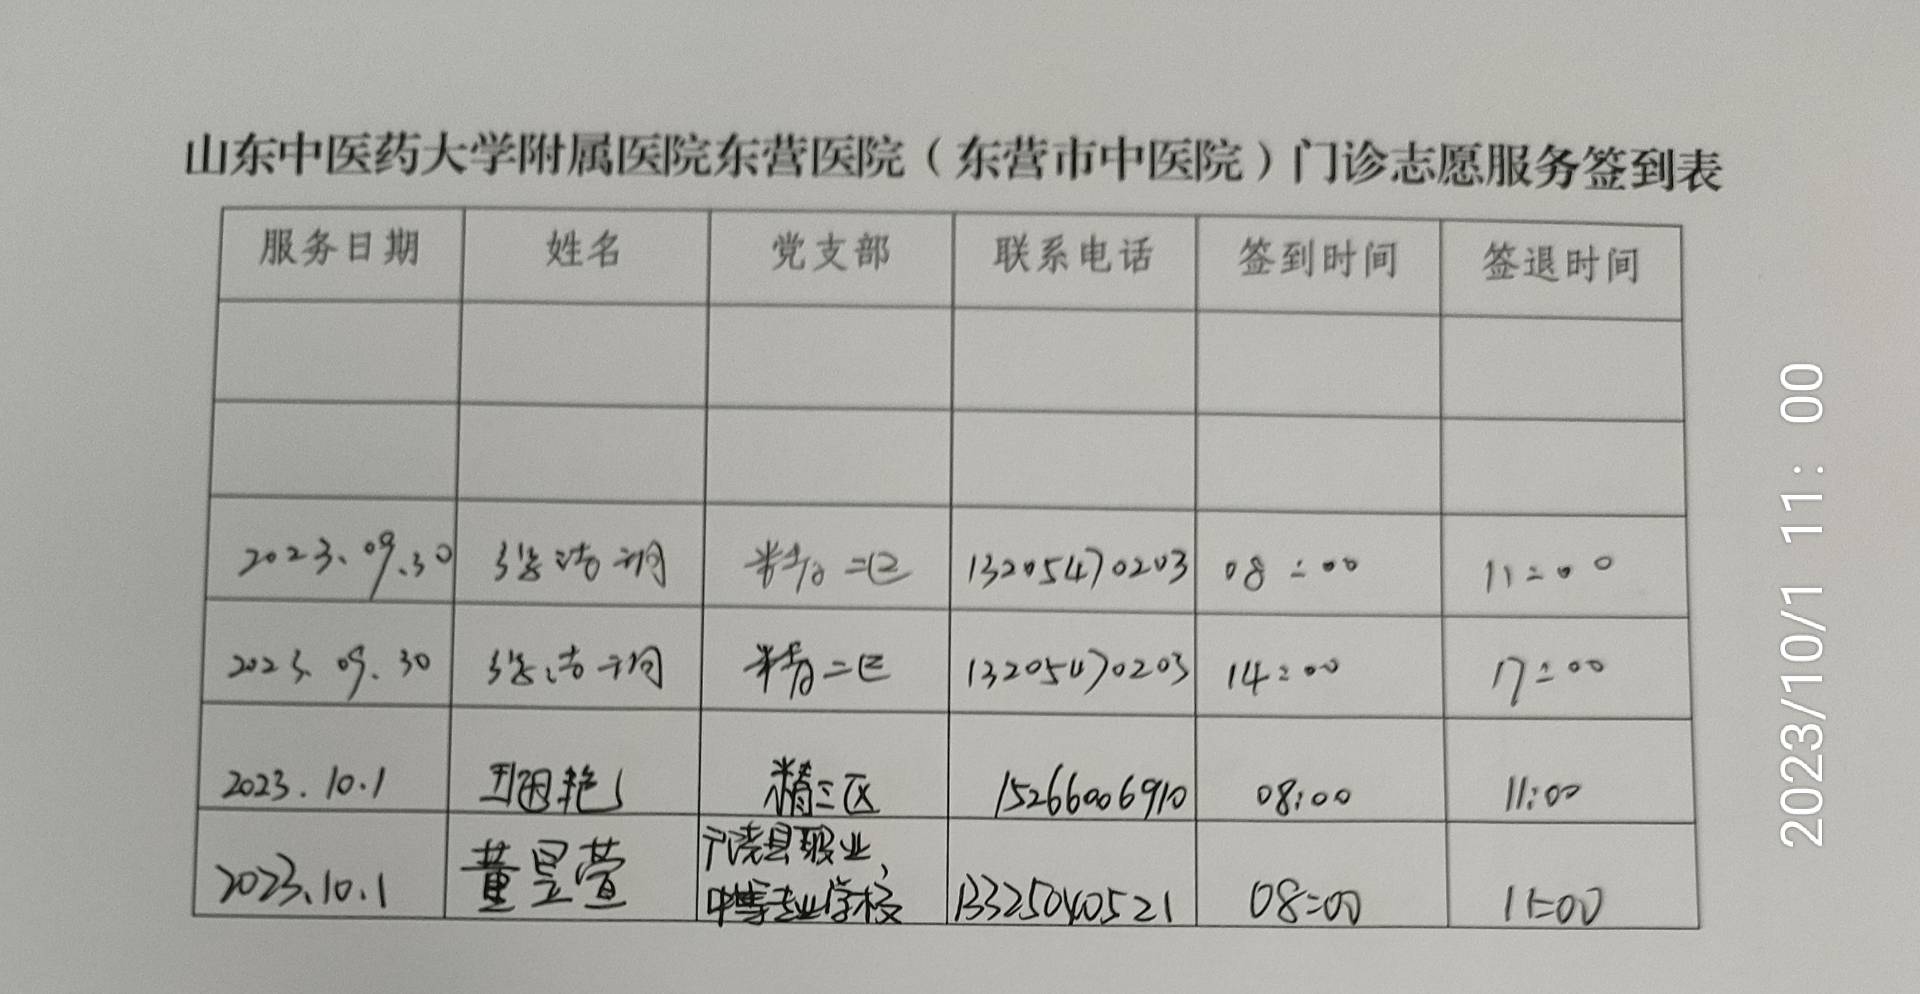 山东中医药大学附属医院东营医院（东营市中医院）门诊志愿服务签到表
服务日期 姓名 党支部 联系电话 签到时间 签退时间
2023.09.30 精二区 13205470203 08:00 11:00
2023.09.30 精二区 13205470203 14:00 17:00
2023.10.1 精三区 15266006910 08:00 11:00
2023.10.1 董昱萱 广饶县职业中等专业学校 13325040521 08:00 11:00
2023/10/1 11:00